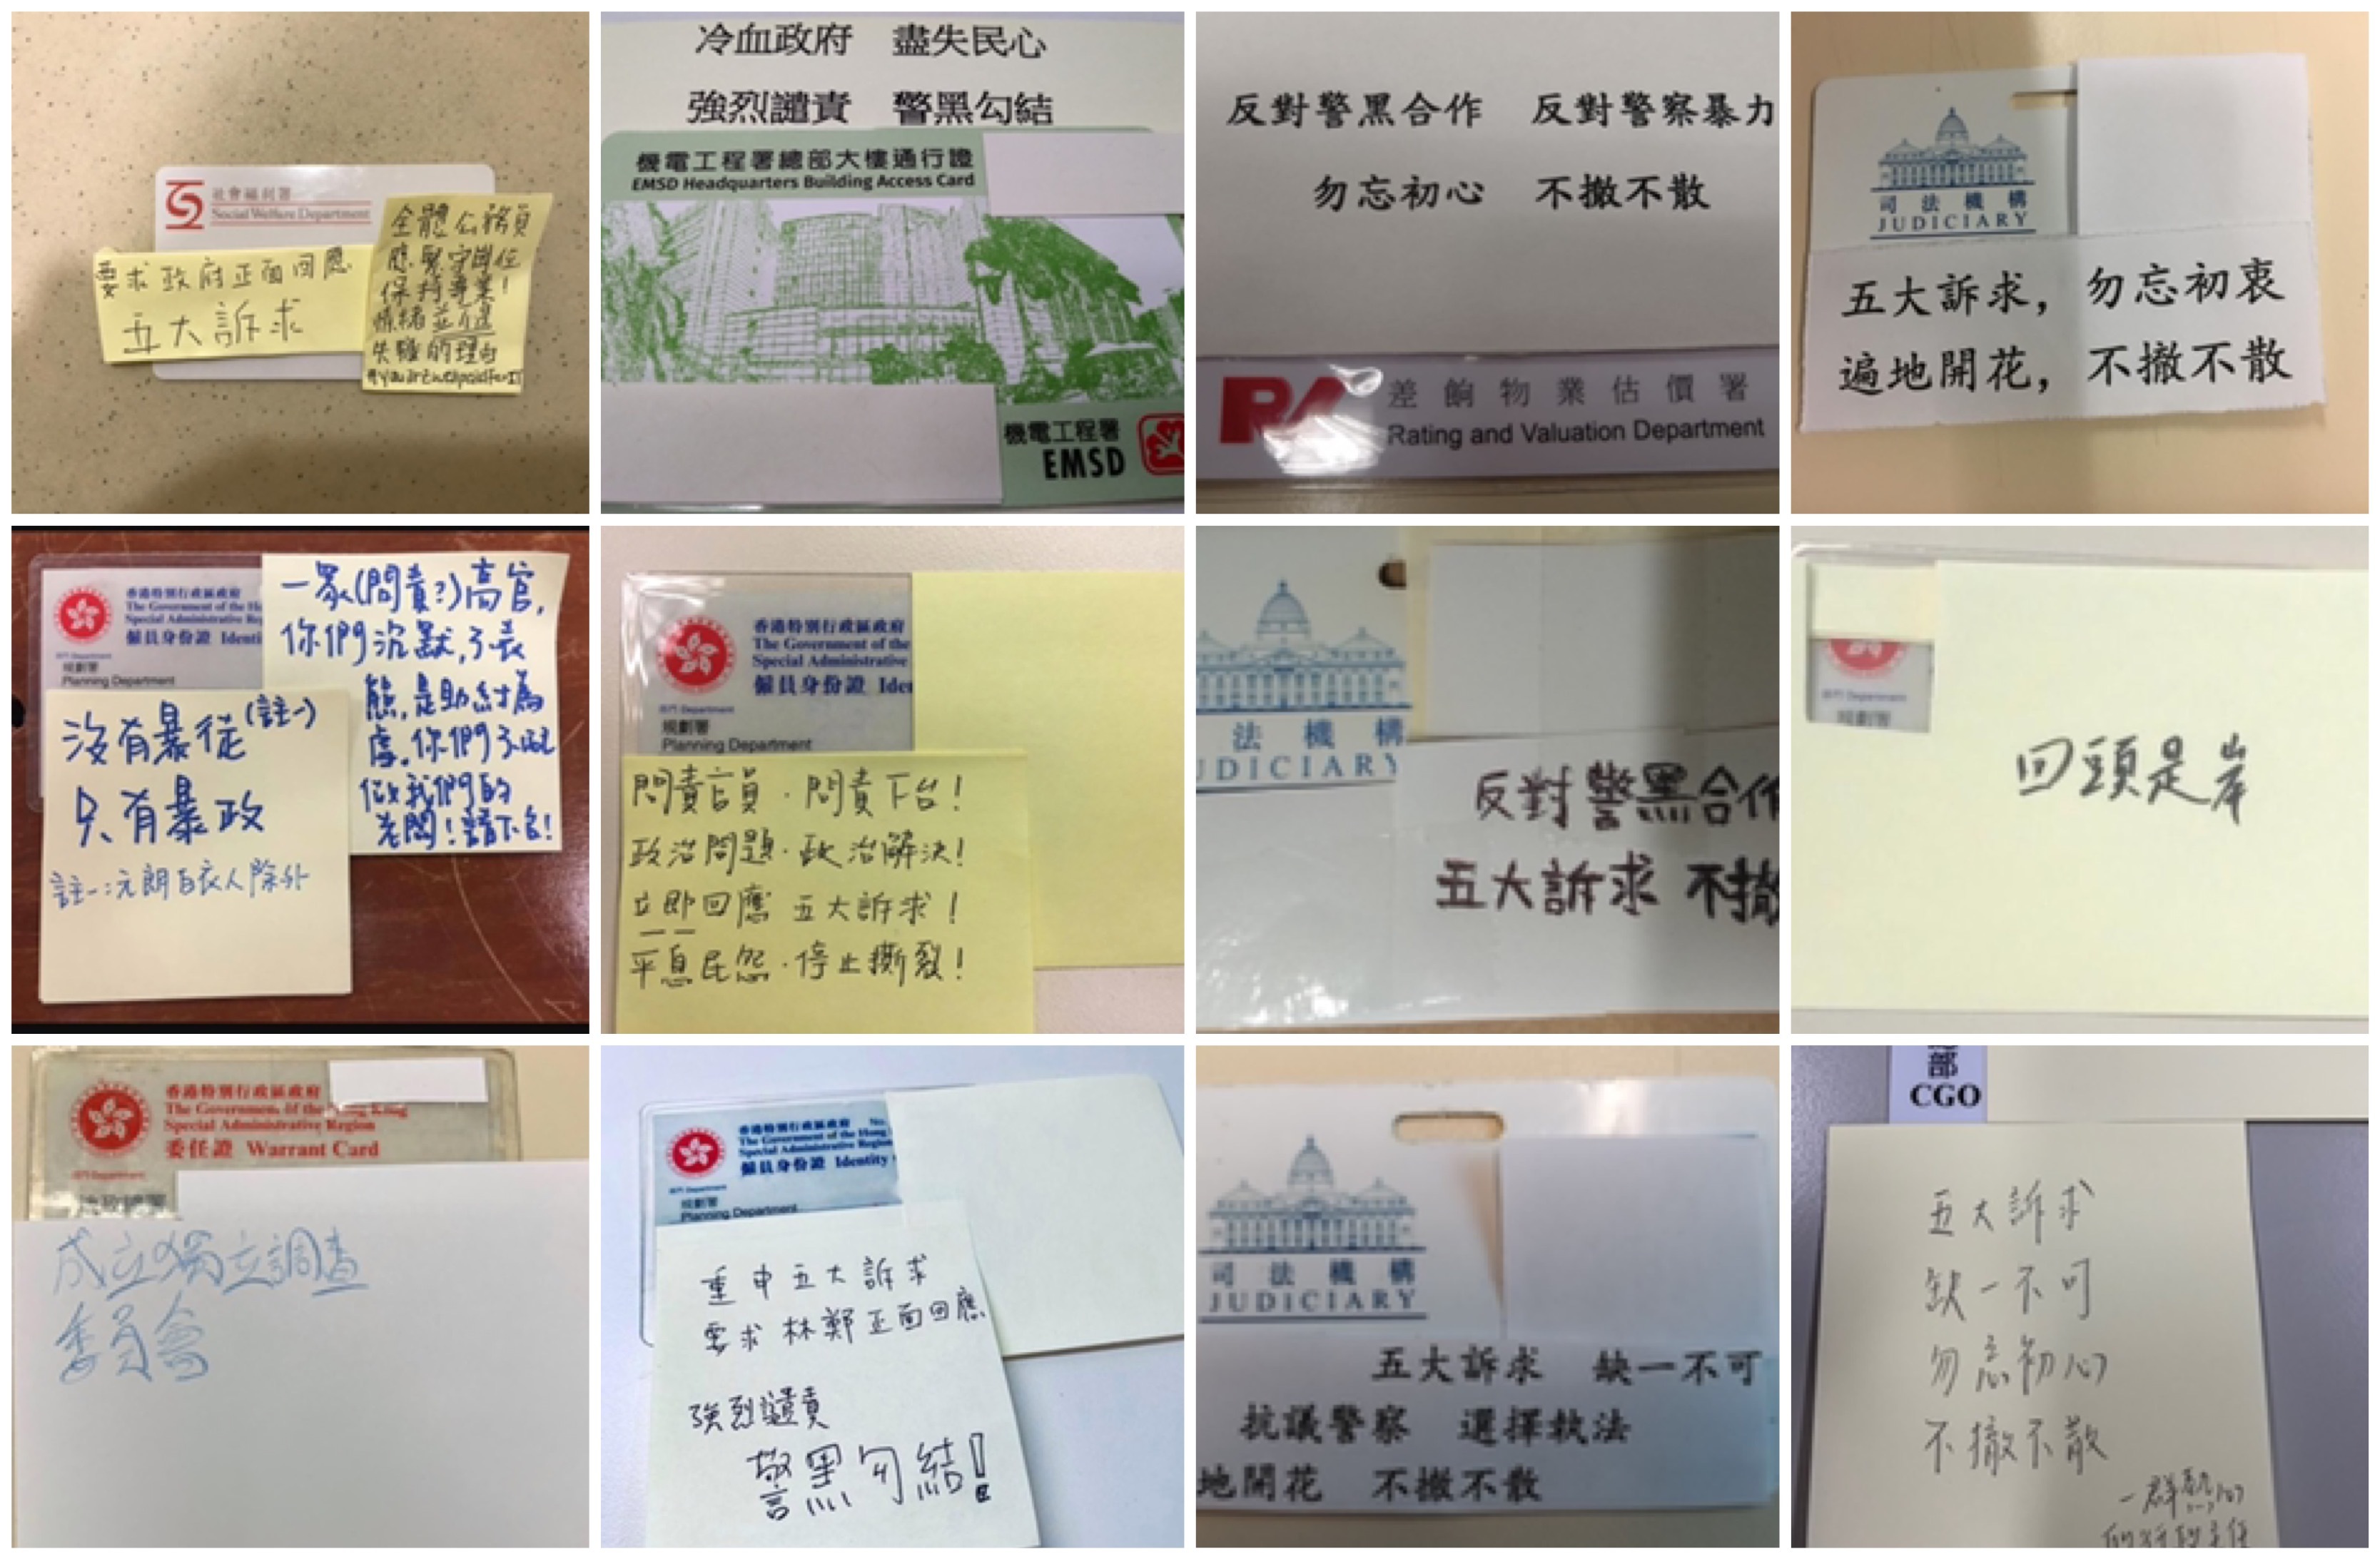 社會福利署
Social Welfare Department
要求政府正面回應
五大訴求
全體公務員
應緊守崗位
保持專業!
情緒並不是
失職的理由
冷血政府 盡失民心
強烈譴責 警黑勾結
機電工程署總部大樓通行證
EMSD Headquarters Building Access Card
機電工程署
EMSD
反對警黑合作 反對警察暴力
勿忘初心 不撤不散
差餉物業估價署
Rating and Valuation Department
司法機構
JUDICIARY
五大訴求，勿忘初衷
遍地開花，不撤不散
香港特別行政區政府
The Government of the Ho
Special Administrative Reg
僱員身份證 Identi
部門 Department
規劃署
Planning Department
一眾(問責?)高官,
你們沉默,不表
態,是助紂為
虐.你們不配
做我們的
老闆!請下台!
沒有暴徒(註一)
只有暴政
註一:元朗白衣人除外
香港特別行政區政府
The Government of the
Special Administrative
僱員身份證 Iden
部門 Department
規劃署
Planning Department
問責官員·問責下台!
政治問題·政治解決!
立即回應 五大訴求!
平息民怨·停止撕裂!
法機構
UDICIARY
反對警黑合作
五大訴求 不撤
部門 Department
規劃署
回頭是岸
香港特別行政區政府
The Government of the Hong Kong
Special Administrative Region
委任證 Warrant Card
部門 Department
成立獨立調查
委員會
香港特別行政區政府 No.
The Government of the Hong
Special Administrative Region
僱員身份證 Identity
部門 Department
規劃署
Planning Department
重申五大訴求
要求林鄭正面回應
強烈譴責
警黑勾結!
司法機構
JUDICIARY
五大訴求 缺一不可
抗議警察 選擇執法
地開花 不撤不散
部
CGO
五大訴求
缺一不可
勿忘初心
不撤不散
一群熱心
的行政主任